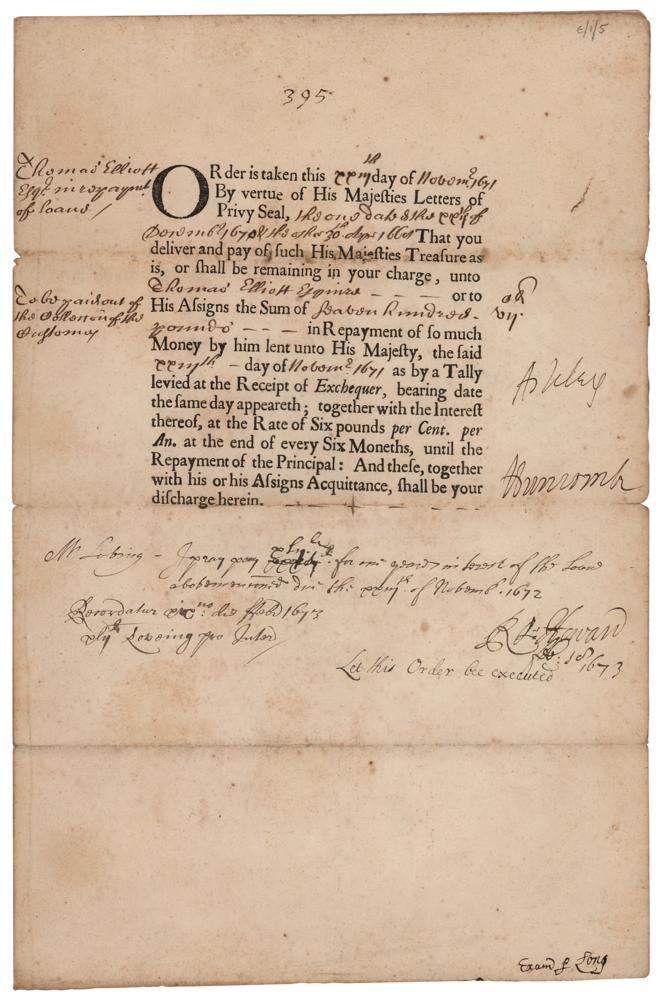 e/1/5
395
Thomas Elliott
Esqr in repaymt
of loane /
ORder is taken this day of Novemr 1671
By vertue of His Majesties Letters of
Privy Seal, the one dated the of
1670 & the other 30th 1668 That you
deliver and pay of such His Majesties Treasure as
is, or shall be remaining in your charge, unto
Thomas Elliott Esquire - - - or to
To be paid out of
the of the
Customes
His Assigns the Sum of Seaven Hundred
pounds - - - in Repayment of so much
Money by him lent unto His Majesty, the said
- day of Novemr 1671 as by a Tally
levied at the Receipt of Exchequer, bearing date
the same day appeareth; together with the Interest
thereof, at the Rate of Six pounds per Cent. per
An. at the end of every Six Moneths, until the
Repayment of the Principal: And these, together
with his or his Assigns Acquittance, shall be your
discharge herein.
Ashley
Duncombe
Mr Loving - I pray pay for one yeares interest of the Loane
abovemencioned due the of Novemb. 1672
Recordatur die Febr 1673
Loveing pro Inter
R Howard
1673
Let this Order bee executed
Examd Long